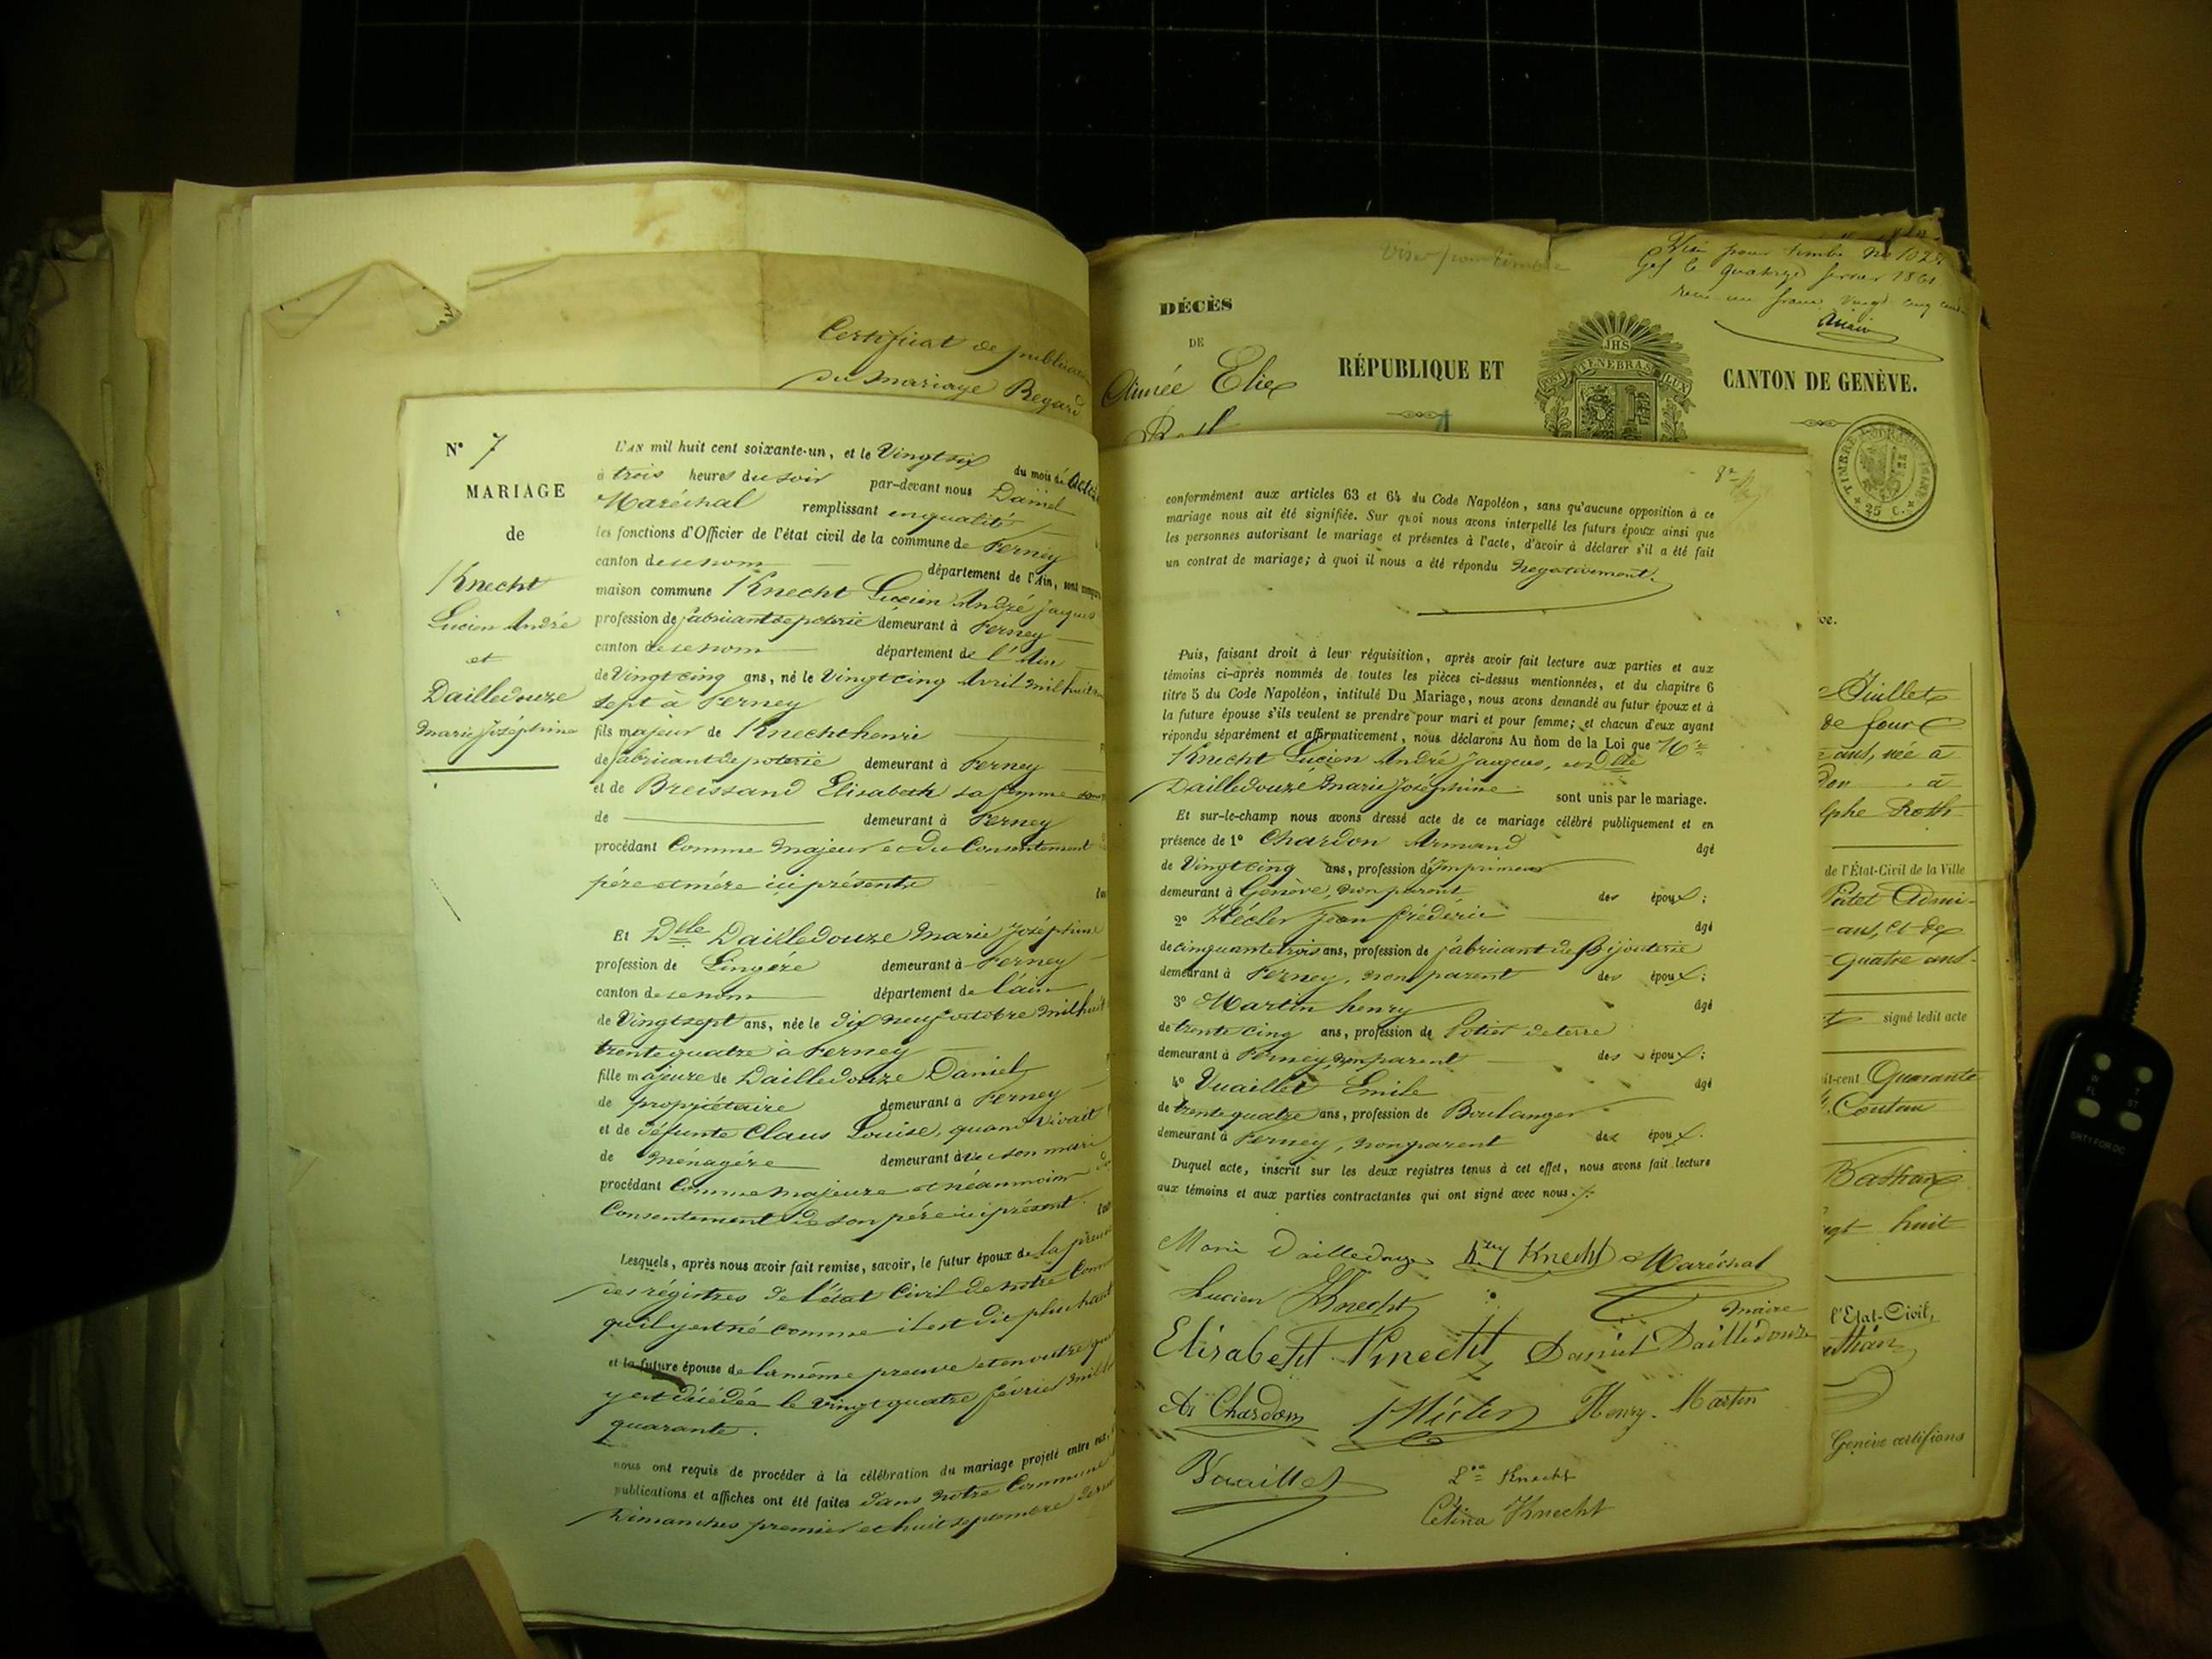 Certificat de publication
du mariage Regard
N° 7
MARIAGE
de
Knecht
Lucien André
et
Dailledouze
Marie Joséphine
L'AN mil huit cent soixante-un, et le Vingt six du mois de
à trois heures du soir par-devant nous Daniel
Maréchal remplissant en qualité
les fonctions d'Officier de l'état civil de la commune de Ferney
canton de ce nom département de l'Ain, sont
maison commune Knecht Lucien André Jaques
profession de fabricant de poterie demeurant à Ferney
canton de ce nom département de l'Ain
de Vingt cinq ans, né le Vingt cinq Avril mil huit
sept à Ferney
fils majeur de Knecht henri
de fabricant de poterie demeurant à Ferney
et de Breissand Elisabeth sa femme
de demeurant à Ferney
procédant Comme majeur et du Consentement
père et mère ici présents
Et Dlle Dailledouze Marie Joséphine
profession de Lingère demeurant à Ferney
canton de ce nom département de l'ain
de Vingt sept ans, née le dix neuf octobre mil huit
trente quatre à Ferney
fille majeure de Dailledouze Daniel
de propriétaire demeurant à Ferney
et de défunte Claus Louise, quand vivait
de Ménagère demeurant avec son mari
procédant Comme majeure et néanmoins
Consentement de son père ici présent
Lesquels, après nous avoir fait remise, savoir, le futur époux de la preuve
des régistres de l'état Civil de notre
qu'il y est né comme il est dit plus haut
et la future épouse de la même preuve et en outre
y est décédée le Vingt quatre février mil
quarante.
nous ont requis de procéder à la célébration du mariage projeté entre eux,
publications et affiches ont été faites dans notre Commune
Dimanches premier et huit septembre
DÉCÈS
DE
Aimée Elie
RÉPUBLIQUE ET CANTON DE GENÈVE.
JHS
POST TENEBRAS LUX
Viser pour timbre
Visé pour timbre No
Gex le quatorze février 1861
reçu un franc vingt cinq
25 C.
conformément aux articles 63 et 64 du Code Napoléon, sans qu'aucune opposition à ce
mariage nous ait été signifiée. Sur quoi nous avons interpellé les futurs époux ainsi que
les personnes autorisant le mariage et présentes à l'acte, d'avoir à déclarer s'il a été fait
un contrat de mariage; à quoi il nous a été répondu Negativement.
Puis, faisant droit à leur réquisition, après avoir fait lecture aux parties et aux
témoins ci-après nommés de toutes les pièces ci-dessus mentionnées, et du chapitre 6
titre 5 du Code Napoléon, intitulé Du Mariage, nous avons demandé au futur époux et à
la future épouse s'ils veulent se prendre pour mari et pour femme; et chacun d'eux ayant
répondu séparément et affirmativement, nous déclarons Au nom de la Loi que
Knecht Lucien André Jaques, et Dlle
Dailledouze Marie Joséphine sont unis par le mariage.
Et sur-le-champ nous avons dressé acte de ce mariage célébré publiquement et en
présence de 1° Chardon Armand âgé
de Vingt cinq ans, profession d'Imprimeur
demeurant à Genève, non parent des époux;
2° Hécler Jean frédéric âgé
de cinquante trois ans, profession de fabricant de Bijouterie
demeurant à Ferney, non parent des époux;
3° Martin henry âgé
de trente cinq ans, profession de Potier de terre
demeurant à Ferney, non parent des époux;
4° Vuaillet Emile âgé
de trente quatre ans, profession de Boulanger
demeurant à Ferney, non parent des époux.
Duquel acte, inscrit sur les deux registres tenus à cet effet, nous avons fait lecture
aux témoins et aux parties contractantes qui ont signé avec nous.
Marie Dailledouze Hry Knecht Maréchal
Lucien Knecht maire
Elisabeth Knecht Daniel Dailledouze
Ad Chardon Hécler Henry Martin
Vuaillet Lse Knecht
Célina Knecht
Juillet
de four
ans, née à
à
lphe Roth
de l'État-Civil de la Ville
ans, et de
quatre ans
signé ledit acte
it-cent Quarante
Coutau
huit
l'Etat-Civil,
Genève certifions
W
FL
T
ST